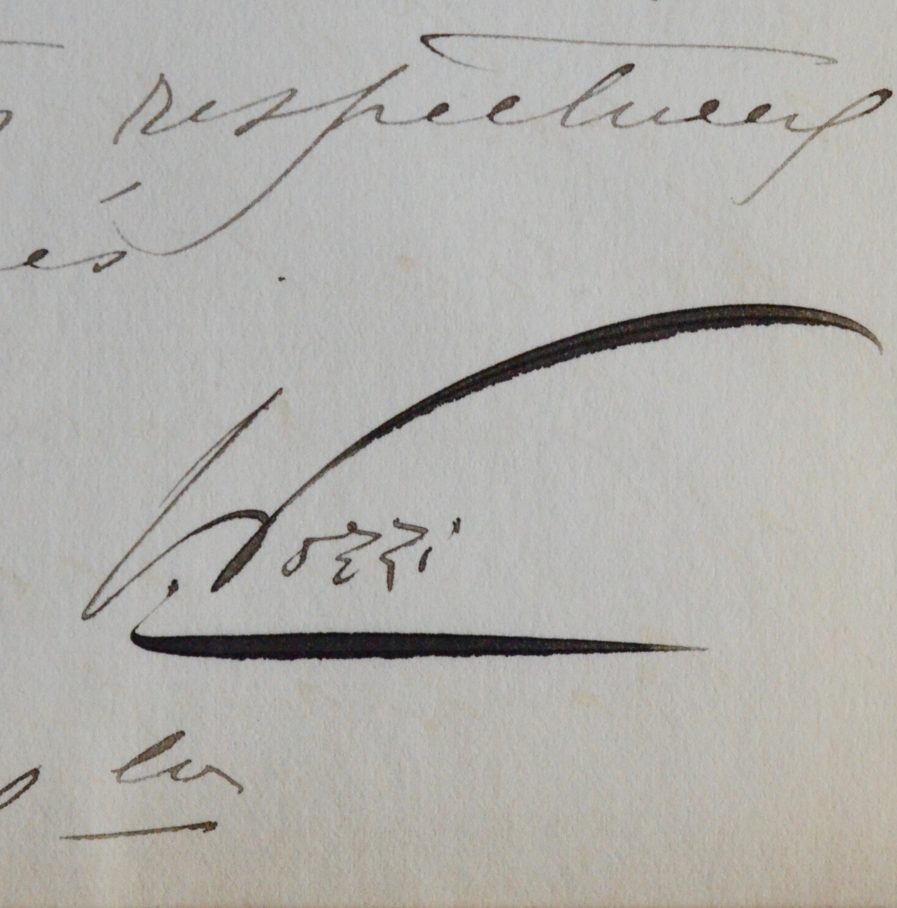 respectueux
és.
Pozzi